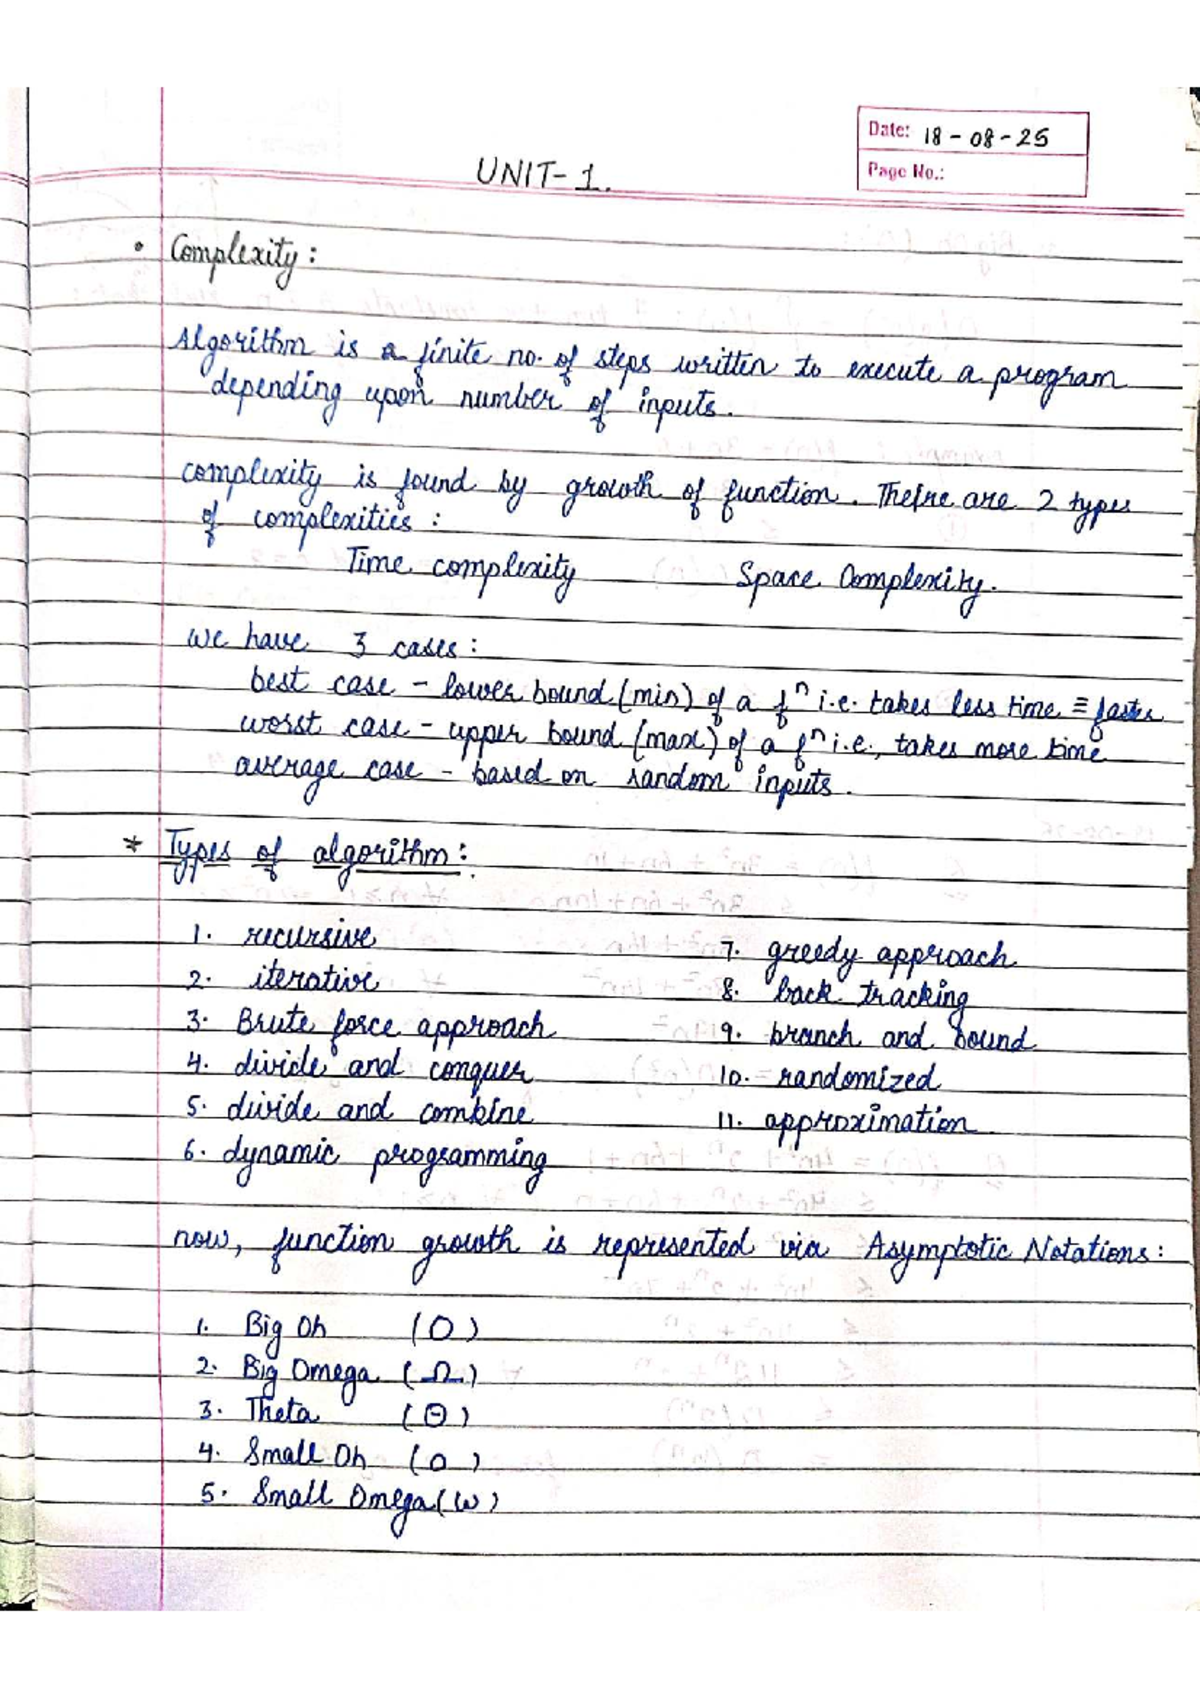 Date: 18-08-25
Page No.:
UNIT-1.
• Complexity:
Algorithm is a finite no. of steps written to execute a program
depending upon number of inputs.
complexity is found by growth of function. There are 2 types
of complexities:
Time complexity Space Complexity.
we have 3 cases:
best case - lower bound (min) of a fⁿ i.e. takes less time ≡ faster
worst case - upper bound (max) of a fⁿ i.e., takes more time
average case - based on random inputs.
* Types of algorithm:
1. recursive
2. iterative
3. Brute force approach
4. divide and conquer
5. divide and combine
6. dynamic programming
7. greedy approach
8. back tracking
9. branch and bound
10. randomized
11. approximation
now, function growth is represented via Asymptotic Notations:
1. Big Oh (O)
2. Big Omega (Ω)
3. Theta (Θ)
4. Small Oh (o)
5. Small Omega (ω)